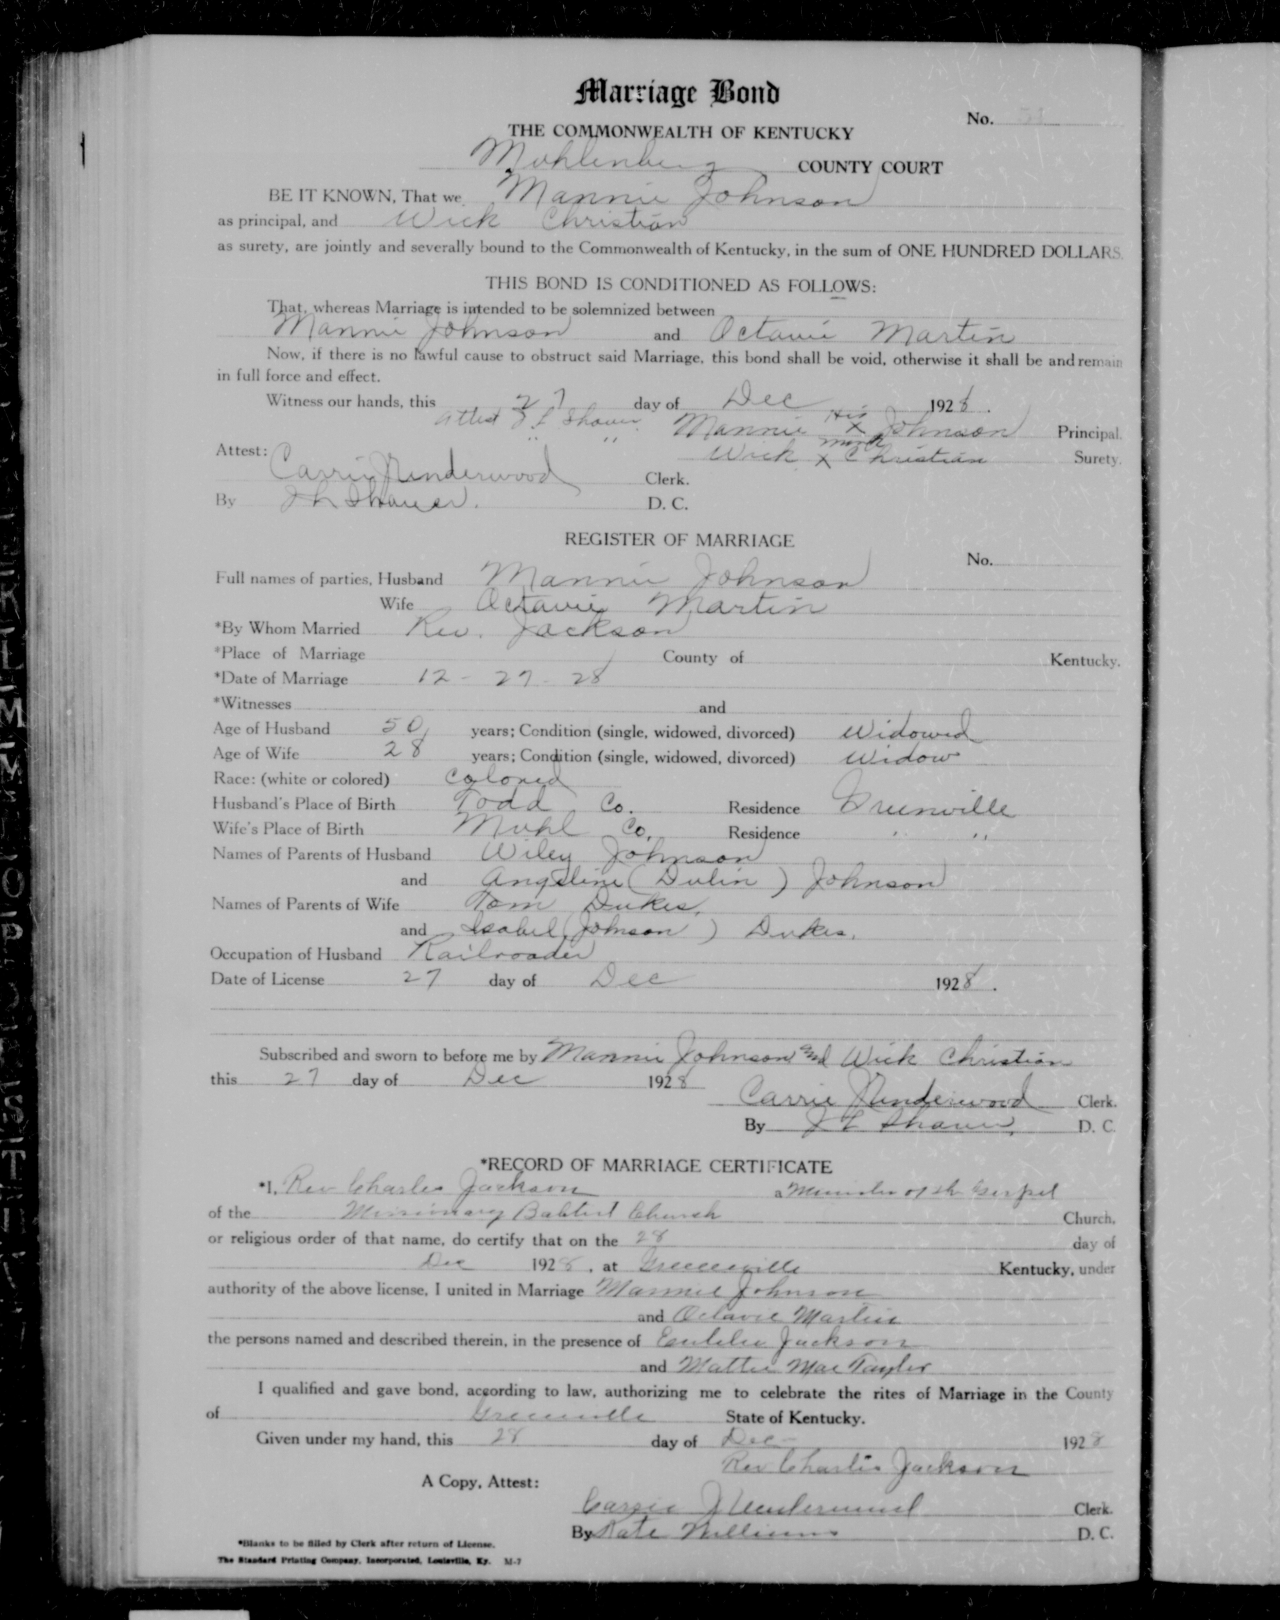 Marriage Bond
No. 51
THE COMMONWEALTH OF KENTUCKY
Muhlenberg COUNTY COURT
BE IT KNOWN, That we Mannie Johnson
as principal, and Wick Christian
as surety, are jointly and severally bound to the Commonwealth of Kentucky, in the sum of ONE HUNDRED DOLLARS.
THIS BOND IS CONDITIONED AS FOLLOWS:
That, whereas Marriage is intended to be solemnized between
Mannie Johnson and Octavie Martin
Now, if there is no lawful cause to obstruct said Marriage, this bond shall be void, otherwise it shall be and remain
in full force and effect.
Witness our hands, this 27 day of Dec 1928.
Attest J L Shaver Mannie His X Johnson Principal.
" " Wick mark X Christian Surety.
Attest: Carrie J Underwood Clerk.
By J L Shaver. D. C.
REGISTER OF MARRIAGE
No.
Full names of parties, Husband Mannie Johnson
Wife Octavie Martin
*By Whom Married Rev. Jackson
*Place of Marriage County of Kentucky.
*Date of Marriage 12 - 27 - 28
*Witnesses and
Age of Husband 50 years; Condition (single, widowed, divorced) Widowed
Age of Wife 28 years; Condition (single, widowed, divorced) Widow
Race: (white or colored) Colored
Husband's Place of Birth Todd Co. Residence Greenville
Wife's Place of Birth Muhl Co. Residence " "
Names of Parents of Husband Wiley Johnson
and Angeline (Dulin) Johnson
Names of Parents of Wife Tom Dukes,
and Isabel (Johnson) Dukes.
Occupation of Husband Railroader
Date of License 27 day of Dec 1928.
Subscribed and sworn to before me by Mannie Johnson and Wick Christian
this 27 day of Dec 1928
Carrie J Underwood Clerk.
By J L Shaver, D. C.
*RECORD OF MARRIAGE CERTIFICATE
*I, Rev Charles Jackson a Minister of the Gospel
of the Missionary Babtist Church Church,
or religious order of that name, do certify that on the 28 day of
Dec 1928, at Greenville Kentucky, under
authority of the above license, I united in Marriage Mannie Johnson
and Octavie Martin
the persons named and described therein, in the presence of Jackson
and Mattie Mae Taylor
I qualified and gave bond, according to law, authorizing me to celebrate the rites of Marriage in the County
of Greenville State of Kentucky.
Given under my hand, this 28 day of Dec 1928
Rev Charles Jackson
A Copy, Attest:
Carrie J Underwood Clerk.
By Kate Williams D. C.
*Blanks to be filled by Clerk after return of License.
The Standard Printing Company, Incorporated, Louisville, Ky. M-7